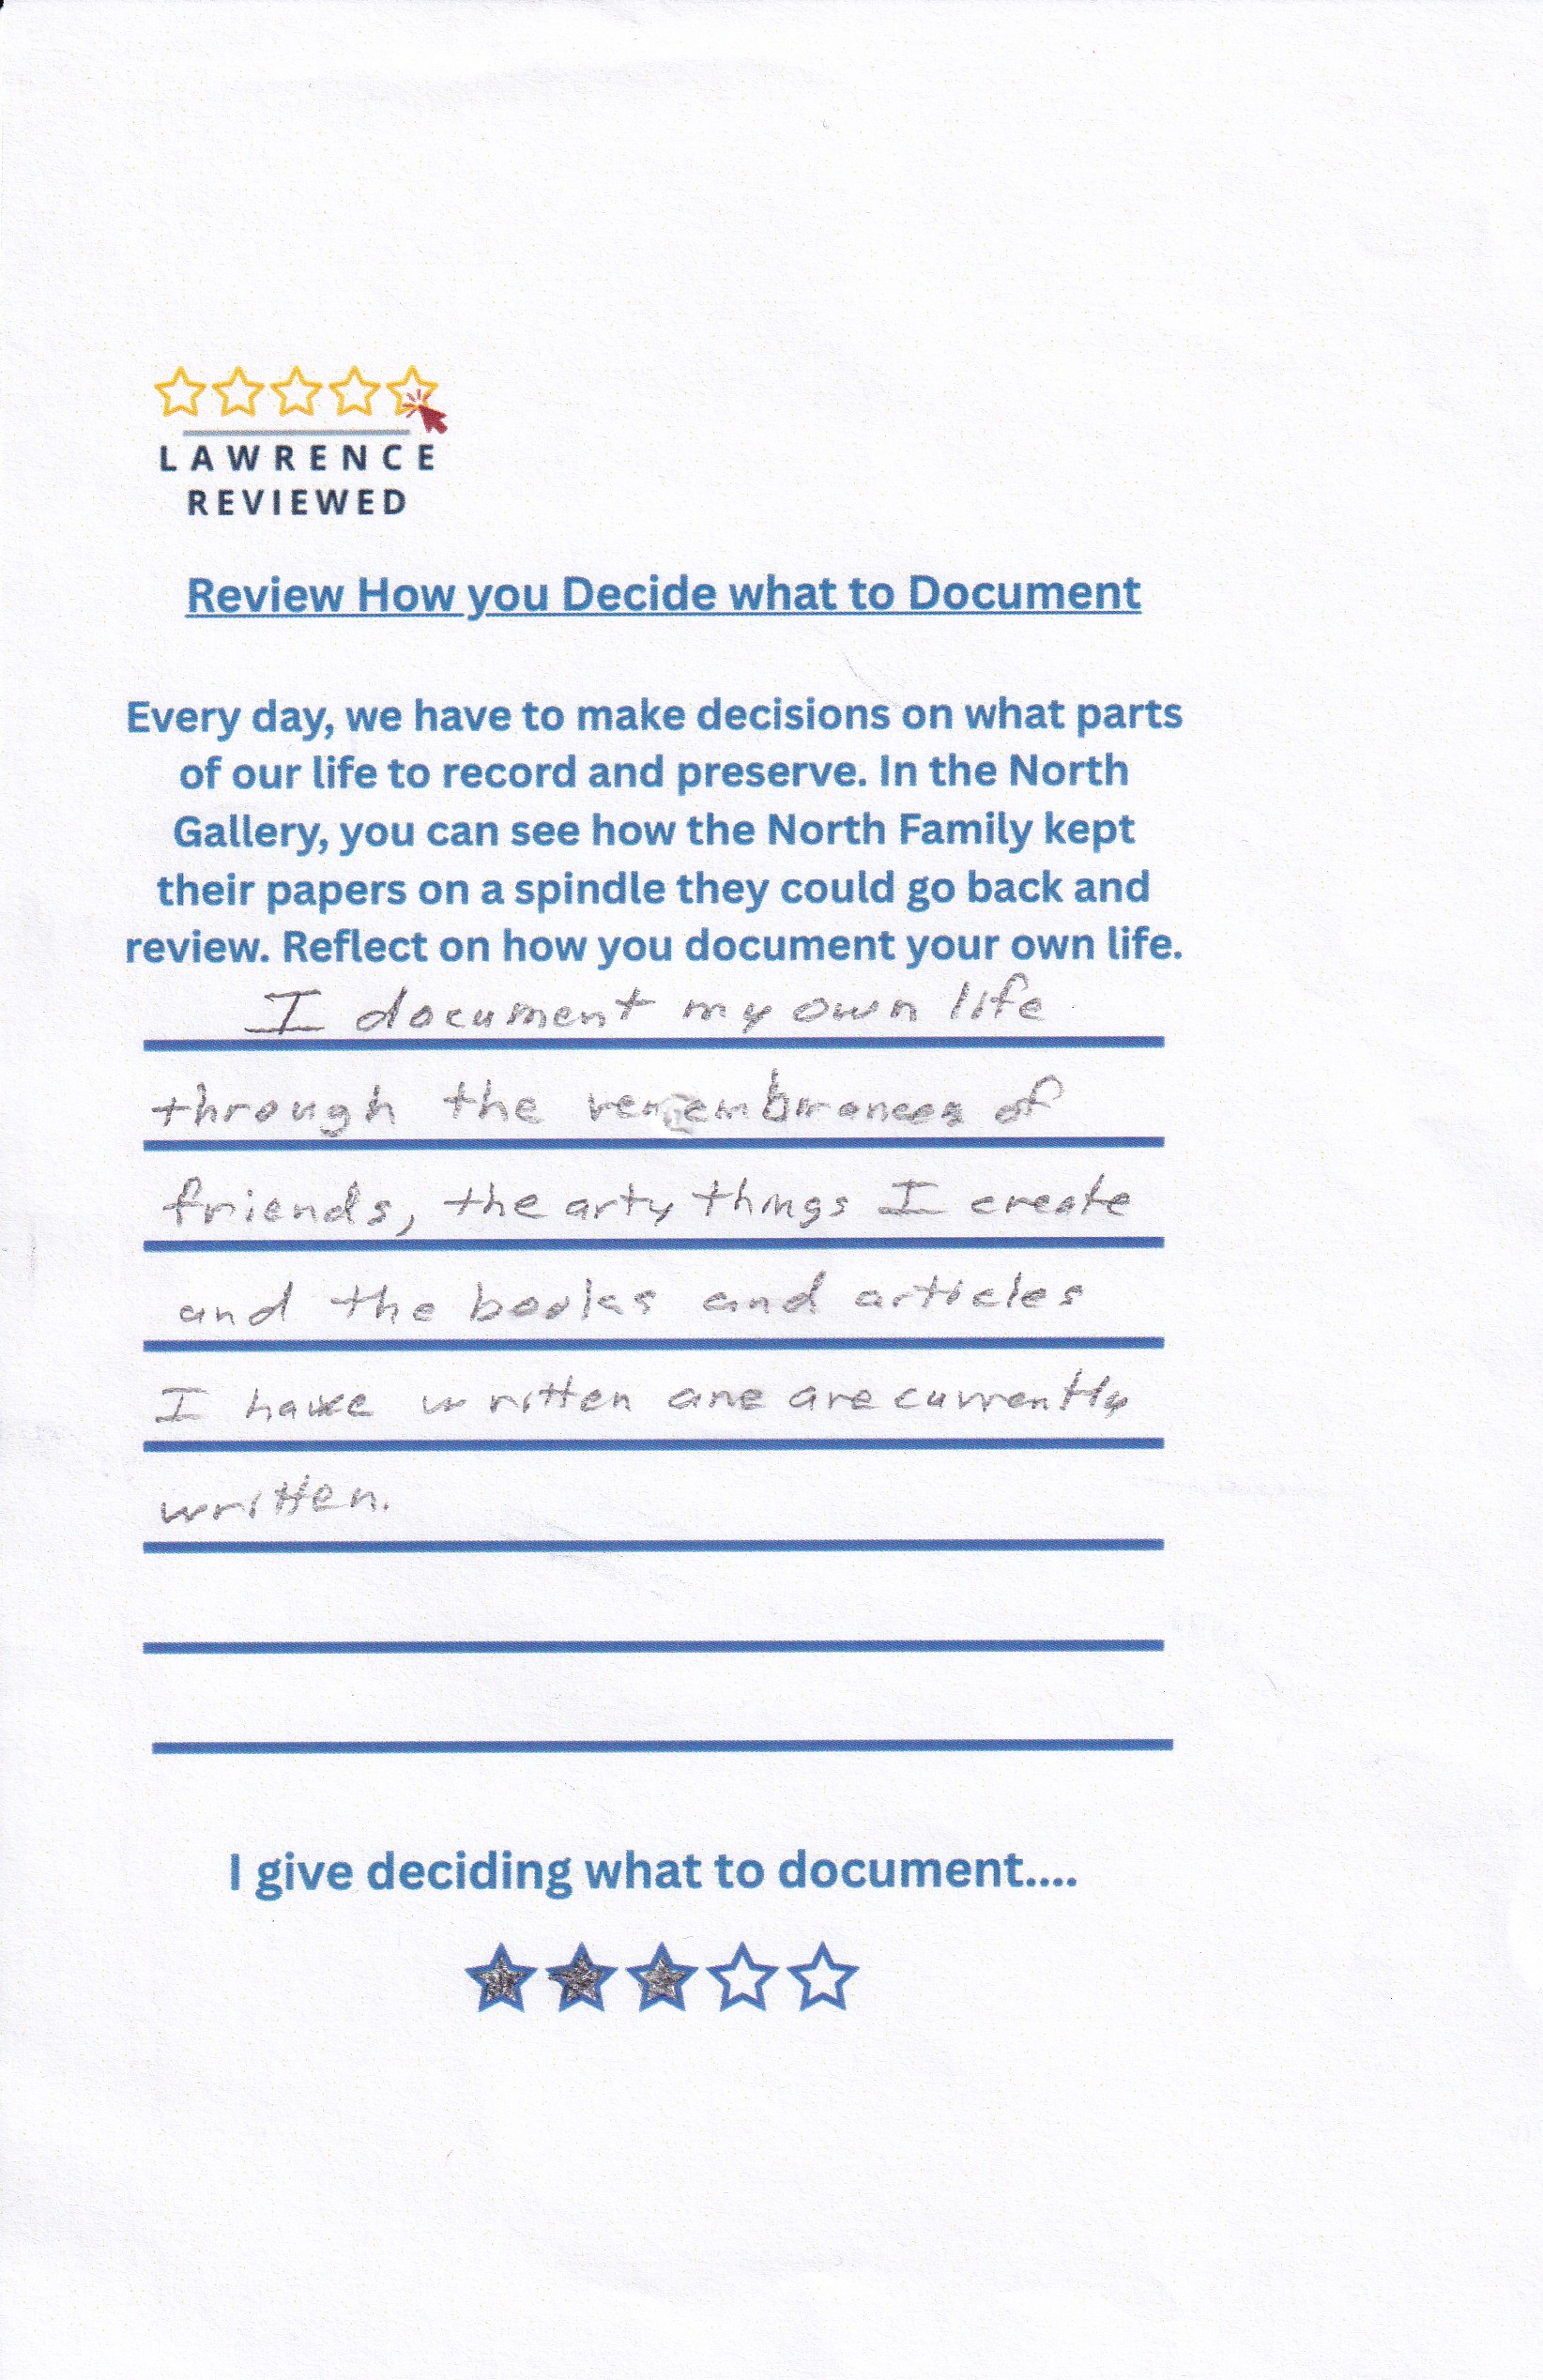 LAWRENCE
REVIEWED
Review How you Decide what to Document
Every day, we have to make decisions on what parts
of our life to record and preserve. In the North
Gallery, you can see how the North Family kept
their papers on a spindle they could go back and
review. Reflect on how you document your own life.
I document my own life
through the remembrances of
friends, the arty things I create
and the books and articles
I have written ane are currently
written.
I give deciding what to document....